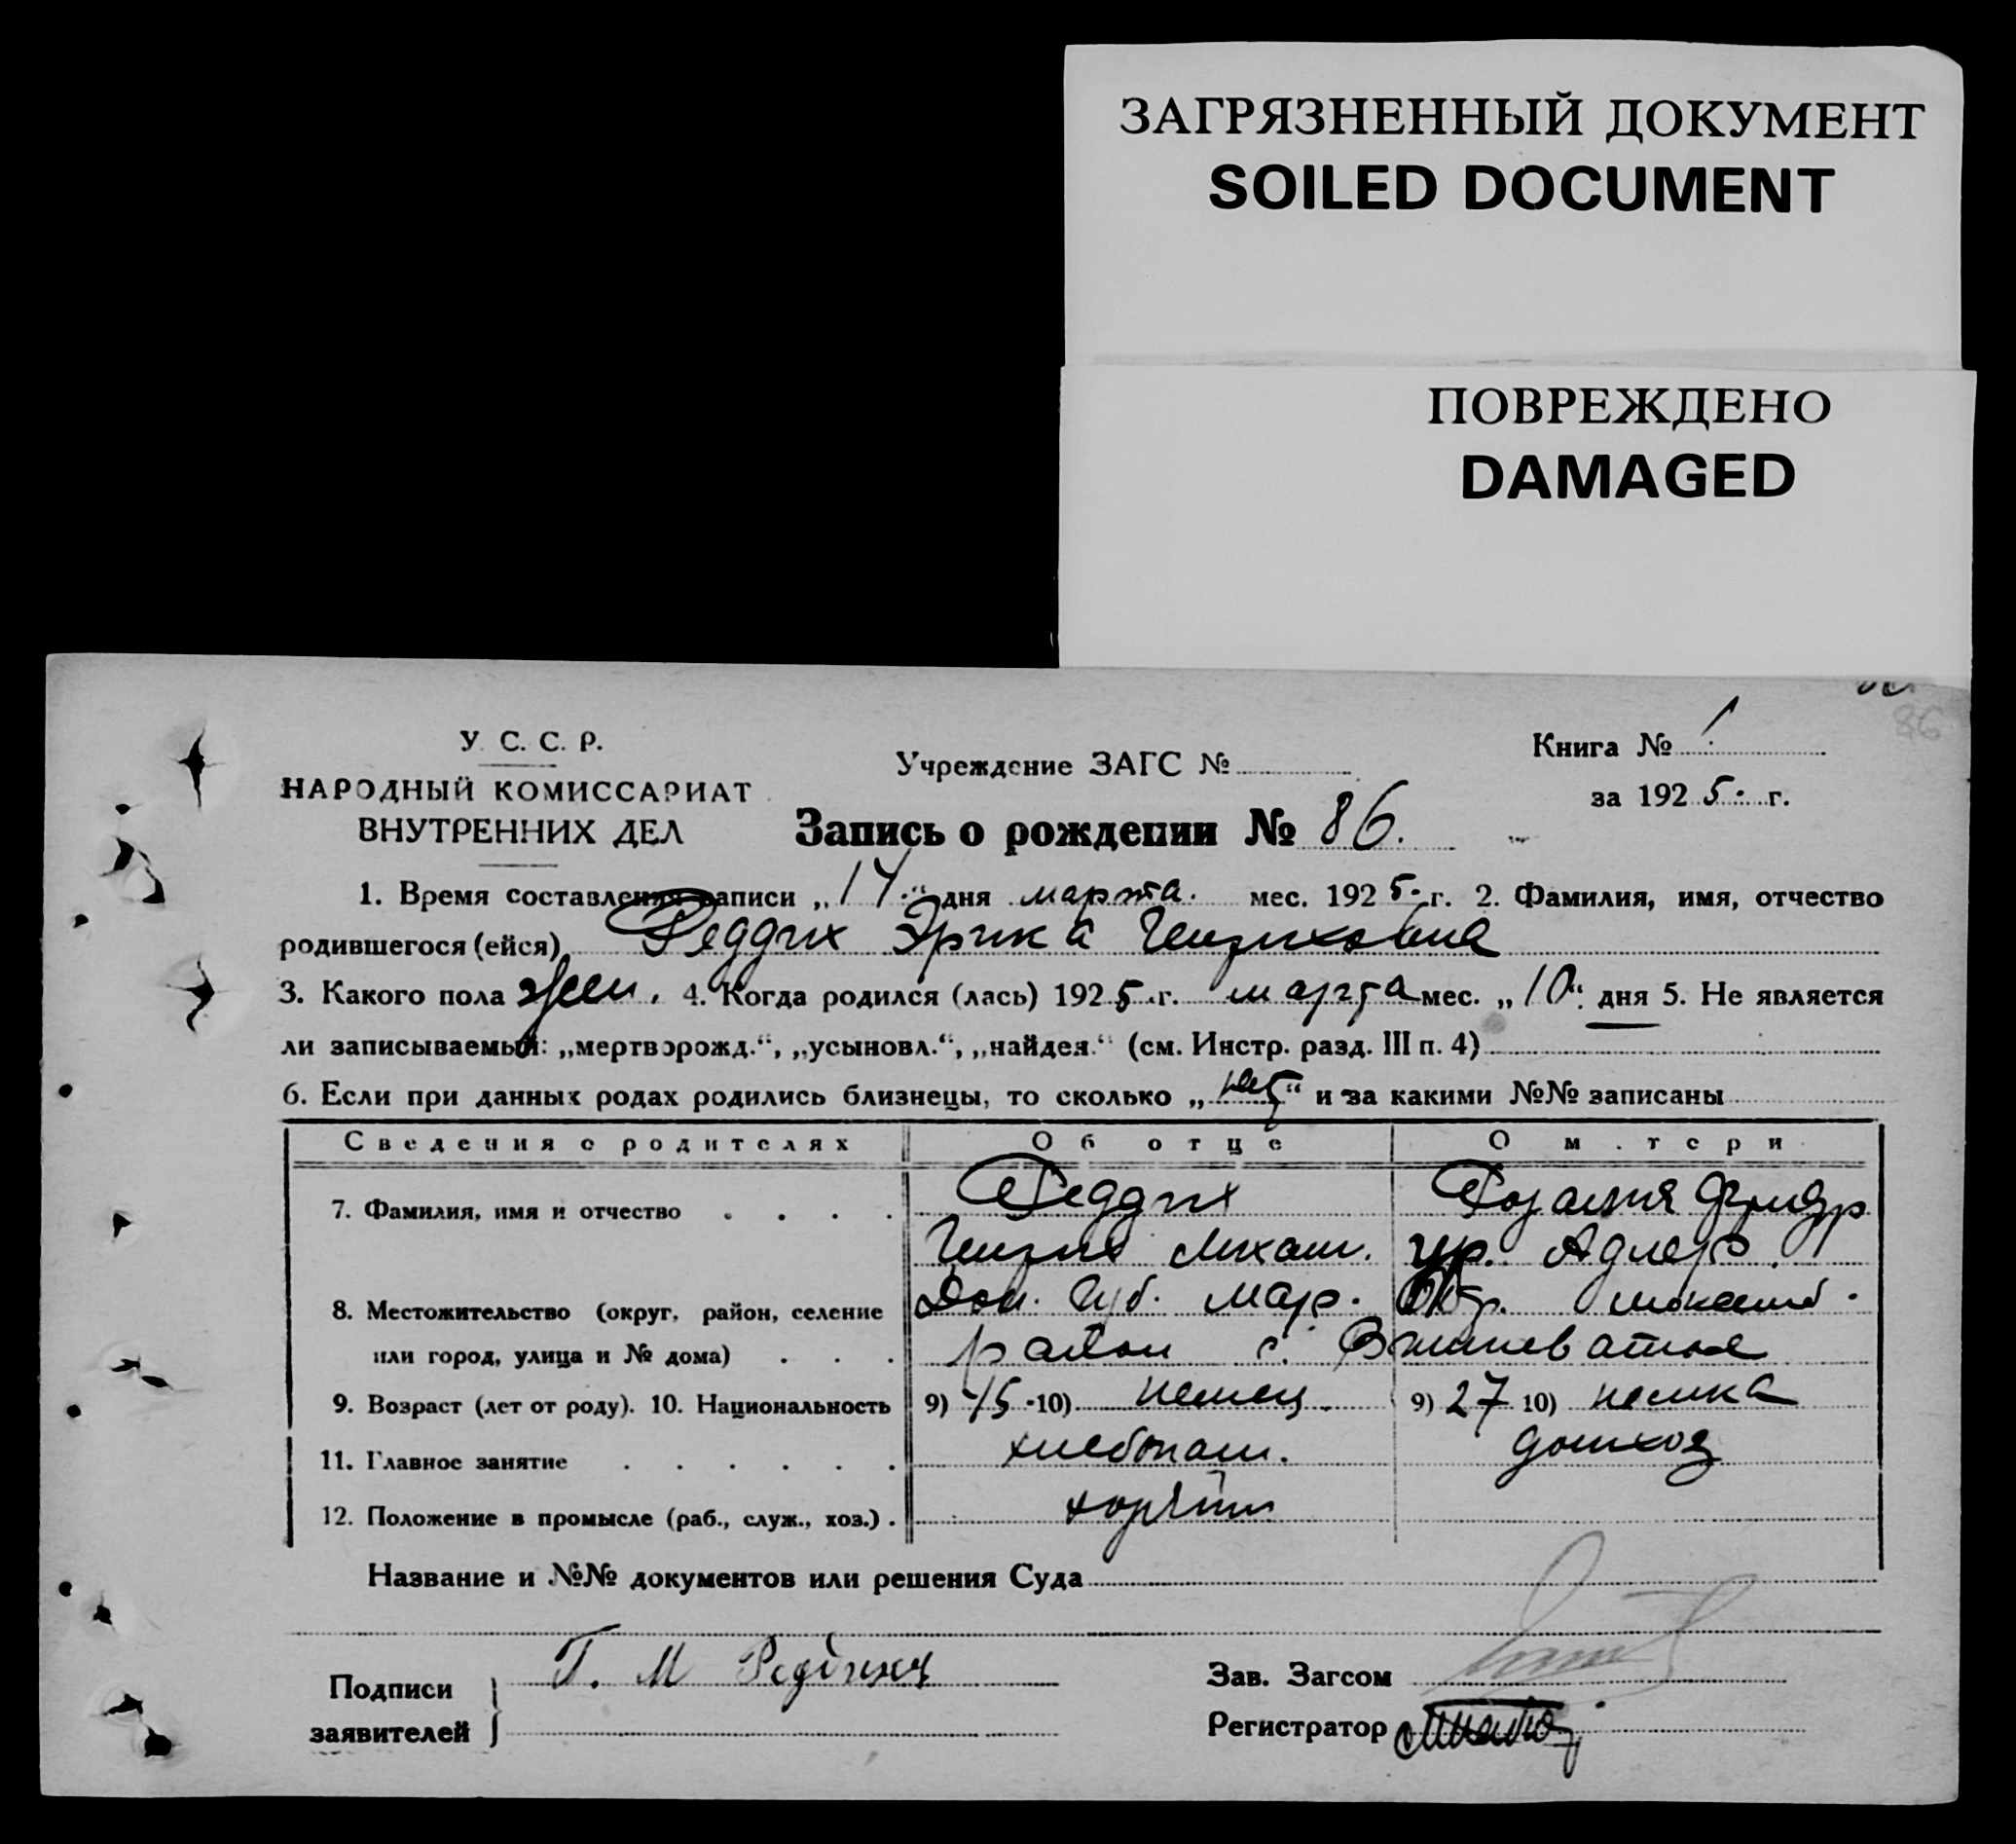 ЗАГРЯЗНЕННЫЙ ДОКУМЕНТ
SOILED DOCUMENT
ПОВРЕЖДЕНО
DAMAGED
86
У. С. С. Р.
НАРОДНЫЙ КОМИССАРИАТ
ВНУТРЕННИХ ДЕЛ
Учреждение ЗАГС №
Книга № 1
за 1925 г.
Запись о рождении № 86.
1. Время составления записи „14“ дня марта. мес. 1925 г. 2. Фамилия, имя, отчество
родившегося (ейся) Реддих Эрика Генриховна
3. Какого пола жен. 4. Когда родился (лась) 1925 г. марта мес. „10“ дня 5. Не является
ли записываемый: „мертворожд.“, „усыновл.“, „найден.“ (см. Инстр. разд. III п. 4)
6. Если при данных родах родились близнецы, то сколько „нет“ и за какими №№ записаны
Сведения о родителях Об отце О м.тери
7. Фамилия, имя и отчество Реддих Розалия Фридр
Генрих Михаил. ур. Адлер.
8. Местожительство (округ, район, селение Дон. Губ. Мар. Окр.
или город, улица и № дома) район с.
9. Возраст (лет от роду). 10. Национальность 9) 45 10) немец 9) 27 10) немка
11. Главное занятие хлебопаш. домхоз
12. Положение в промысле (раб., служ., хоз.)
Название и №№ документов или решения Суда
Подписи Г. М
заявителей
Зав. Загсом
Регистратор